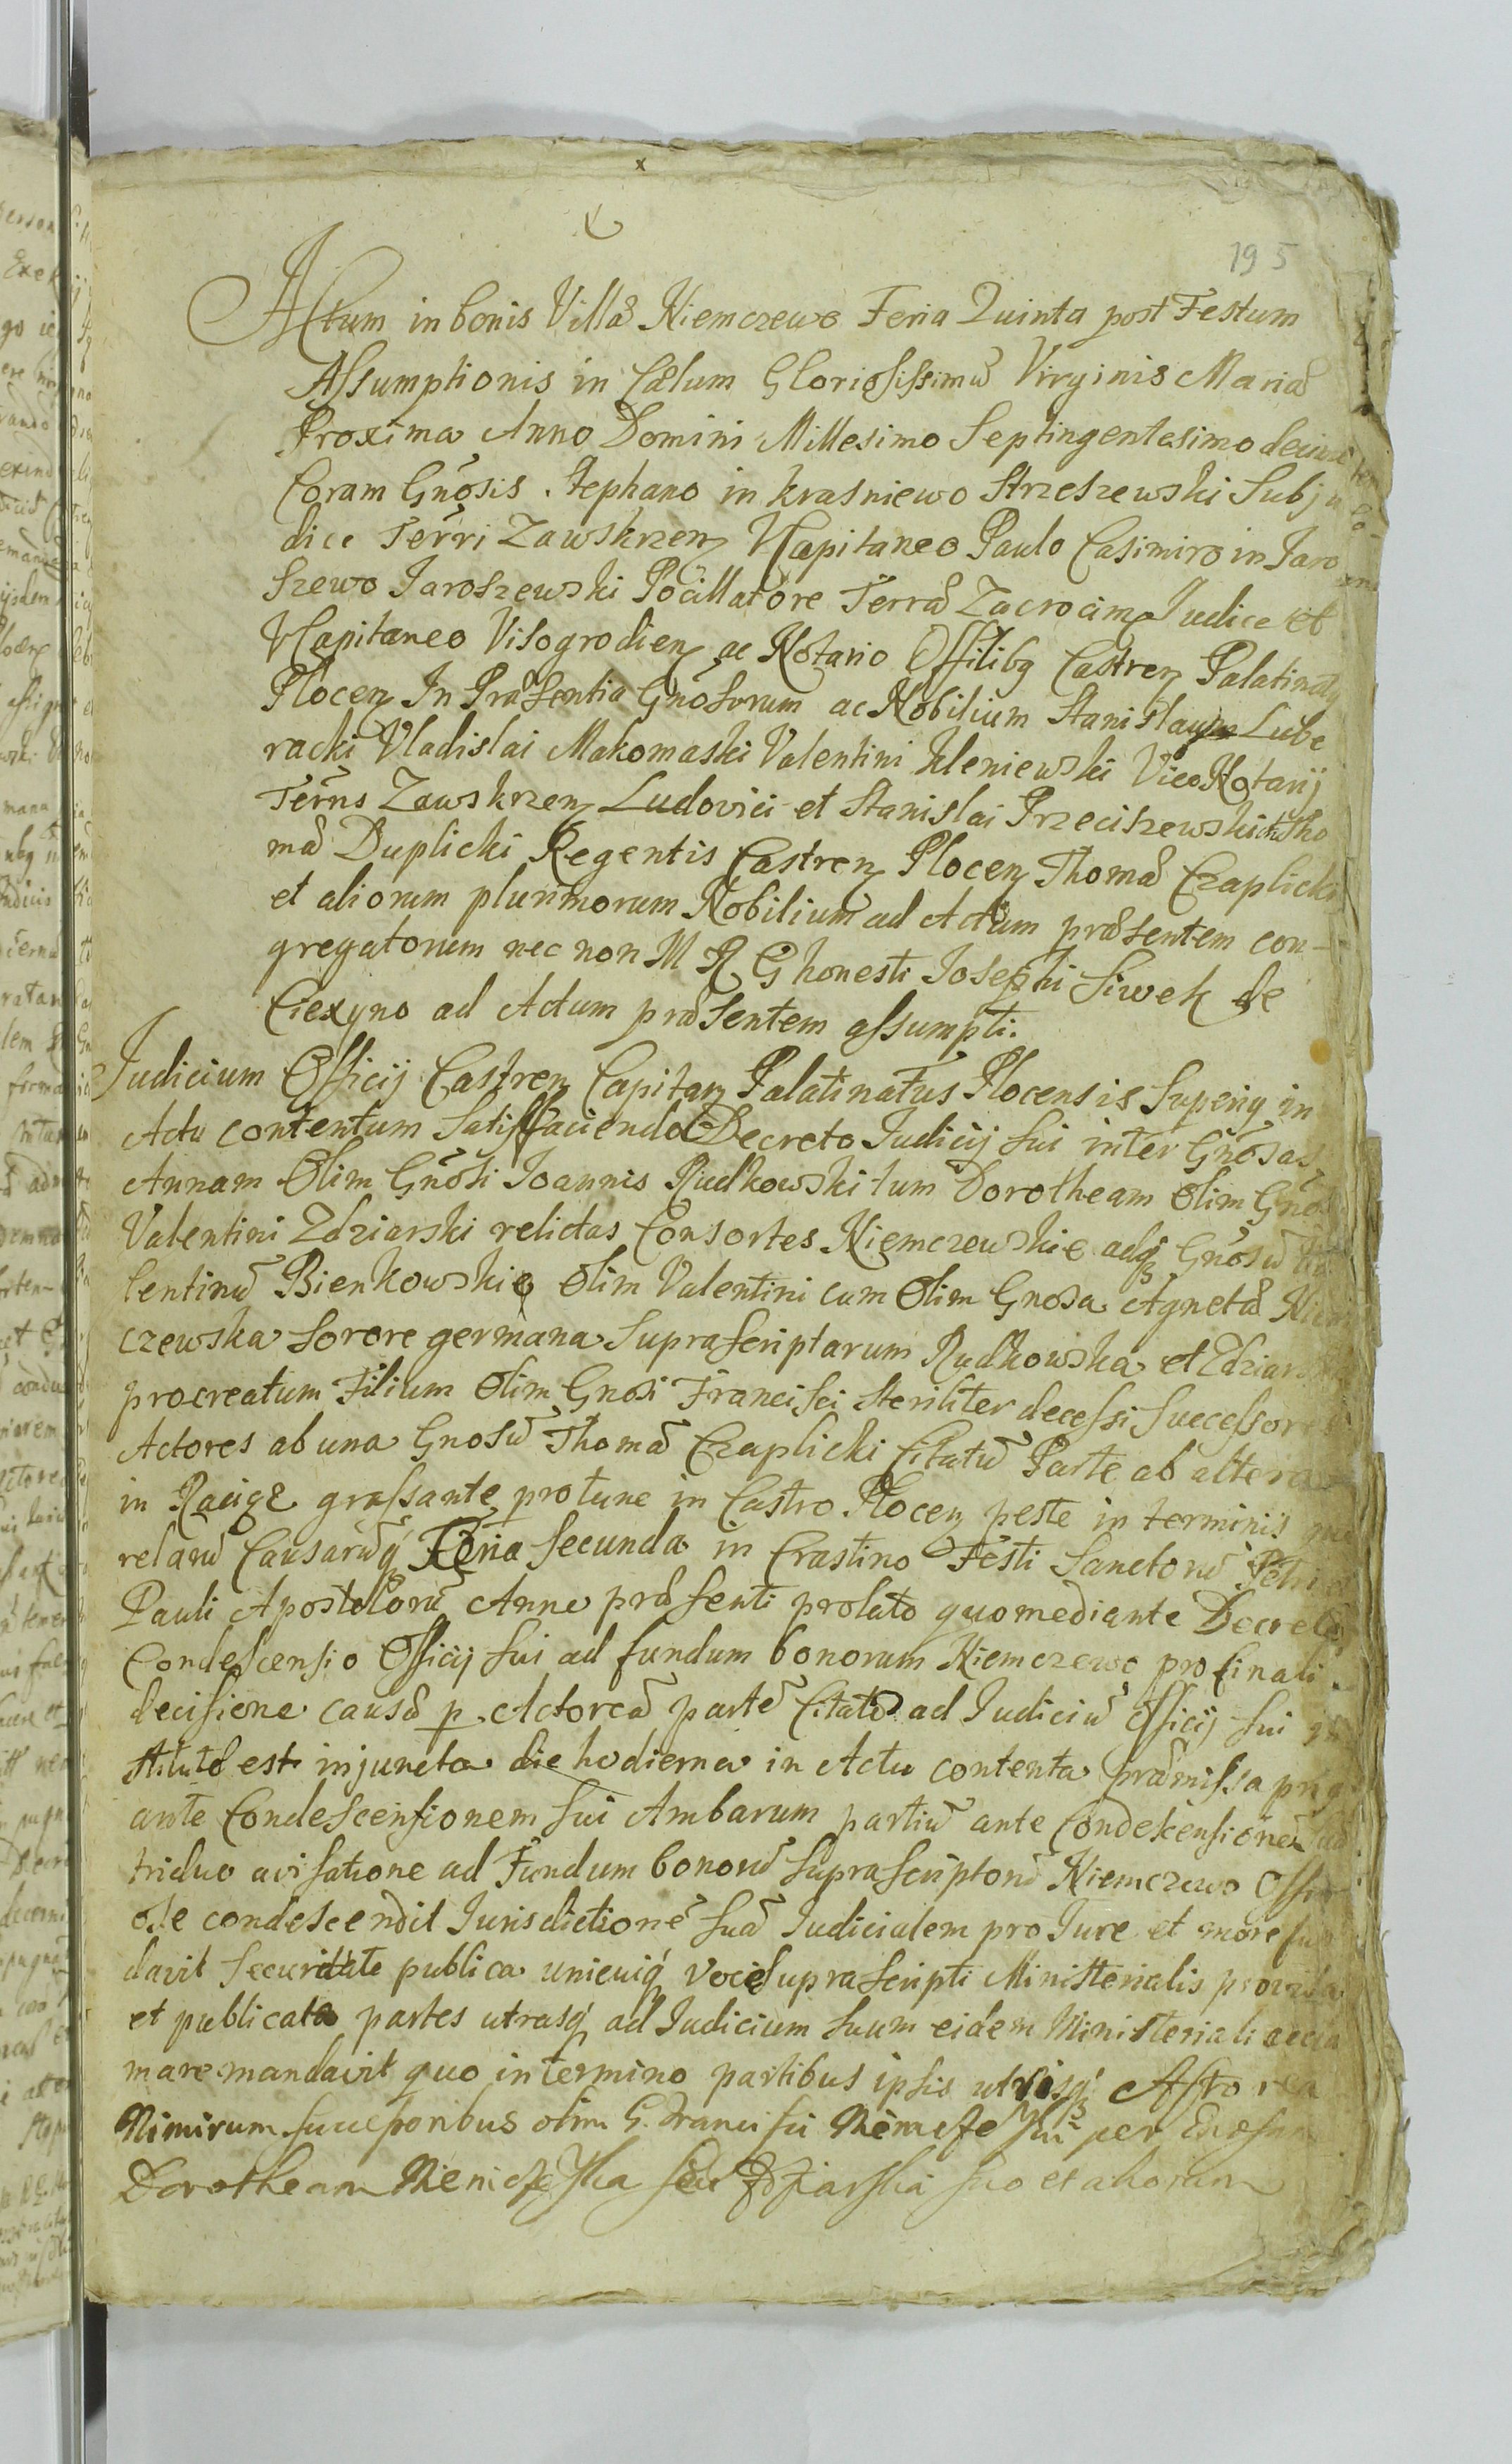 195
Actum in bonis Villæ Niemczewo Feria Quinta post Festum
Assumptionis in Cælum Gloriosissimæ Virginis Mariæ
Proxima Anno Domini Millesimo Septingentesimo decimo
Coram Gnosis Stephano in Krasniewo Strzeszewski Subju
dice Terri Zawskrzen VCapitaneo Paulo Casimiro in Jaro
szewo Jaroszewski Pocillatore Terræ Zacrocim Judice et
VCapitaneo Visogrodien ac Notario Offilibq Castren Palatinatq
Plocen In Præsentia Gnosorum ac Nobilium Stanislaum Lube
racki Vladislai Makomaski Valentini Kleniewski Vice Notarij
Terrns Zawskrzen Ludovici et Stanislai Przeciszewskich Tho
mæ Duplicki Regentis Castren Plocen Thomæ Czaplicki
et aliorum plurimorum Nobilium ad Actum præsentem con-
gregatorum nec non M R G honesti Josephi Siwek de
Ciexyno ad Actum præsentem assumpti.
Judicium Officij Castren Capitan Palatinatus Plocensis Superiq in
Actu contentum Satisfaciendo Decreto Judicij sui inter Gnosas
Annam Olim Gnosi Joannis Rudkowski tum Dorotheam Olim Gnosi
Valentini Zdziarski relictas Consortes Niemczewskie adq Gnosū Va
lentinū Bienkowskie Olim Valentini cum Olim Gnosa Agnetæ Niem
czewska Sorore germana Suprascriptarum Rudkowska et Zdziarska
procreatum Filium Olim Gnosi Francisci Steriliter decessi Successores
Actores ab una Gnosū Thomā Czaplicki Citatū Parte ab altera
in Raciąż grassante protunc in Castro Plocen peste in terminis que
relarū Causarūq Feria Secunda in Crastino Festi Sanctorū Petri et
Pauli Apostolorū Anne præsenti prolato quo mediante Decreto
Condescensio Officij sui ad fundum bonorum Niemczewo pro finali
decisione causæ p. Actoreā partē Citatæ ad Judiciū Officij sui
stitutæ est injuncta die hodierna in Actu contenta præmissa
ante Condescensionem sui Ambarum partiū ante Condescensionē suā
triduo avisatione ad Fundum bonorū Suprascriptorū Niemczewo
ose condescendit Jurisdictionē suā Judicialem pro Jure et more fun
davit Securitate publica unicuiq voce Suprascripti Ministerialis provisa
et publicata partes utrasq ad Judicium Suum eidem Ministeriali accla
mare mandavit quo in termino partibus ipsis utrisq Actorea
Nimirum successoribus olim G. Francisci per
Dorotheam suo et aliorum